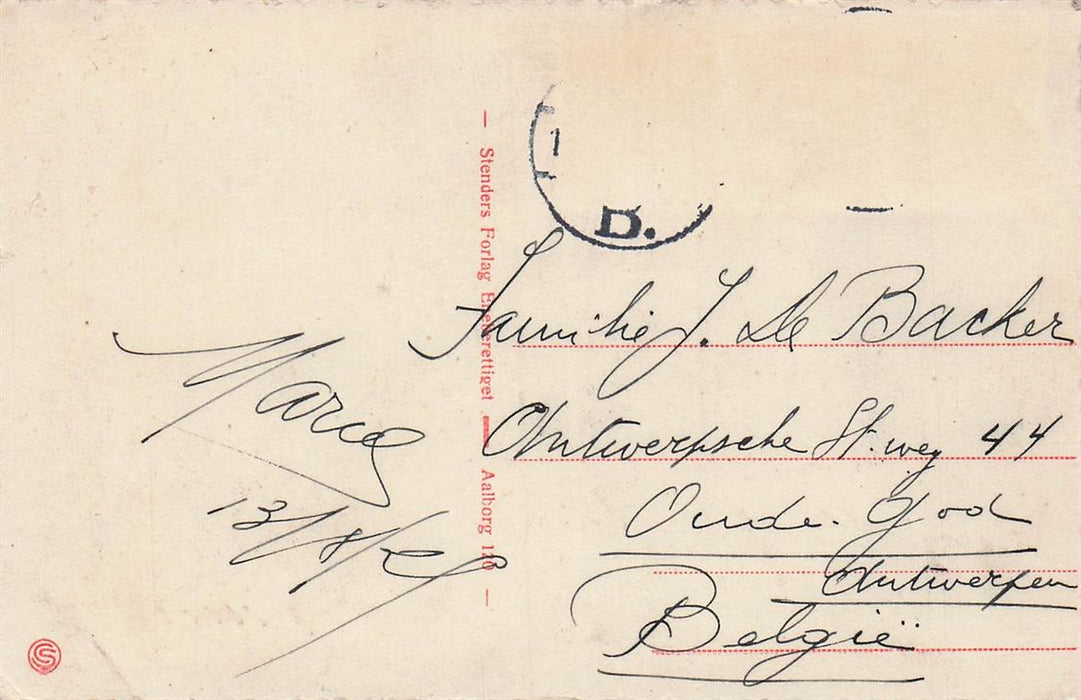 — Stenders Forlag Eneberettiget — Aalborg 176 —
B.
Familie J. De Backer
Antwerpsche St. weg 44
Oude-God
Antwerpen
België
13/8/